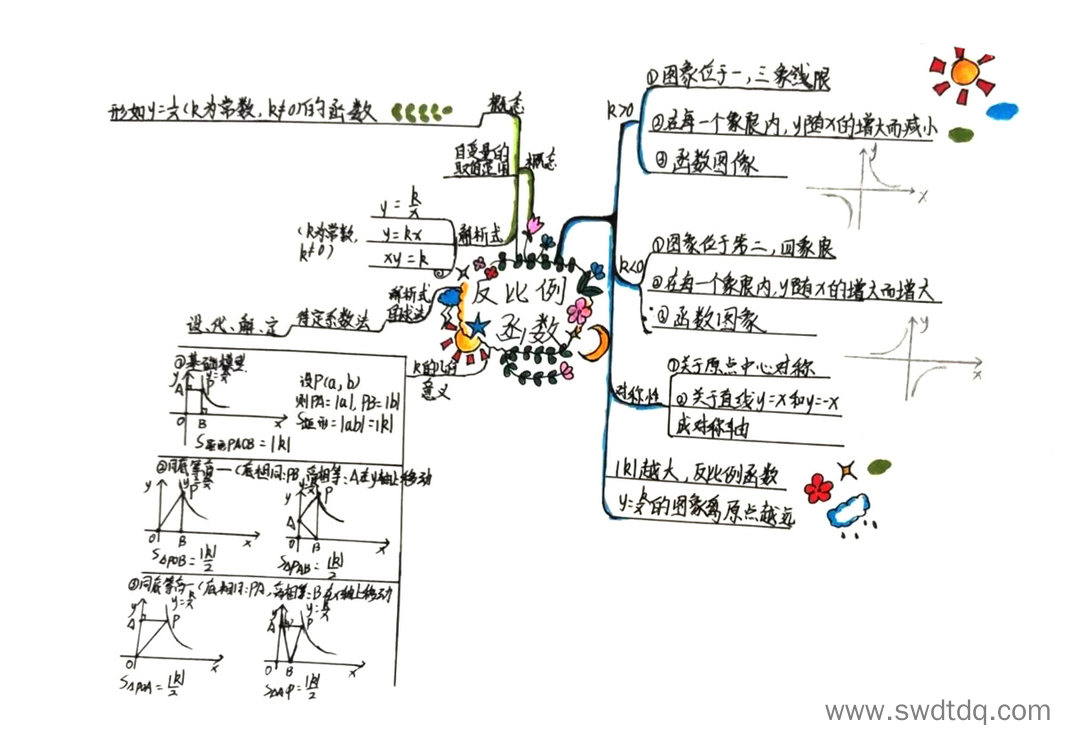 反比例
函数
概念
形如y=k/x(k为常数,k≠0)的函数
概念
自变量的
取值范围
解析式
y=k/x
y=kx
xy=k
(k为常数,
k≠0)
解析式
待定系数法
设、代、解、定
k的几何
意义
①基础模型
y=k/x
y
A
P
O
B
x
设P(a,b)
则PA=|a|,PB=|b|
S矩形=|ab|=|k|
S矩形PAOB=|k|
②同底等高一(底相同:PB,高相等:A在y轴上移动
y
y=k/x
P
O
B
x
S△POB=|k|/2
y
y=k/x
A
P
O
B
x
S△PAB=|k|/2
③同底等高一(底相同:PA,高相等:B在x轴上移动
y
y=k/x
A
P
O
x
S△POA=|k|/2
y
y=k/x
A
P
O
B
x
S△AP=|k|/2
k>0
①图象位于一,三象线限
②在每一个象限内,y随x的增大而减小
③函数图像
y
x
k<0
①图象位于第二,四象限
②在每一个象限内,y随x的增大而增大
③函数图象
y
x
对称性
①关于原点中心对称
②关于直线y=x和y=-x
成对称轴
|k|越大,反比例函数
y=k/x的图象离原点越远
www.swdtdq.com